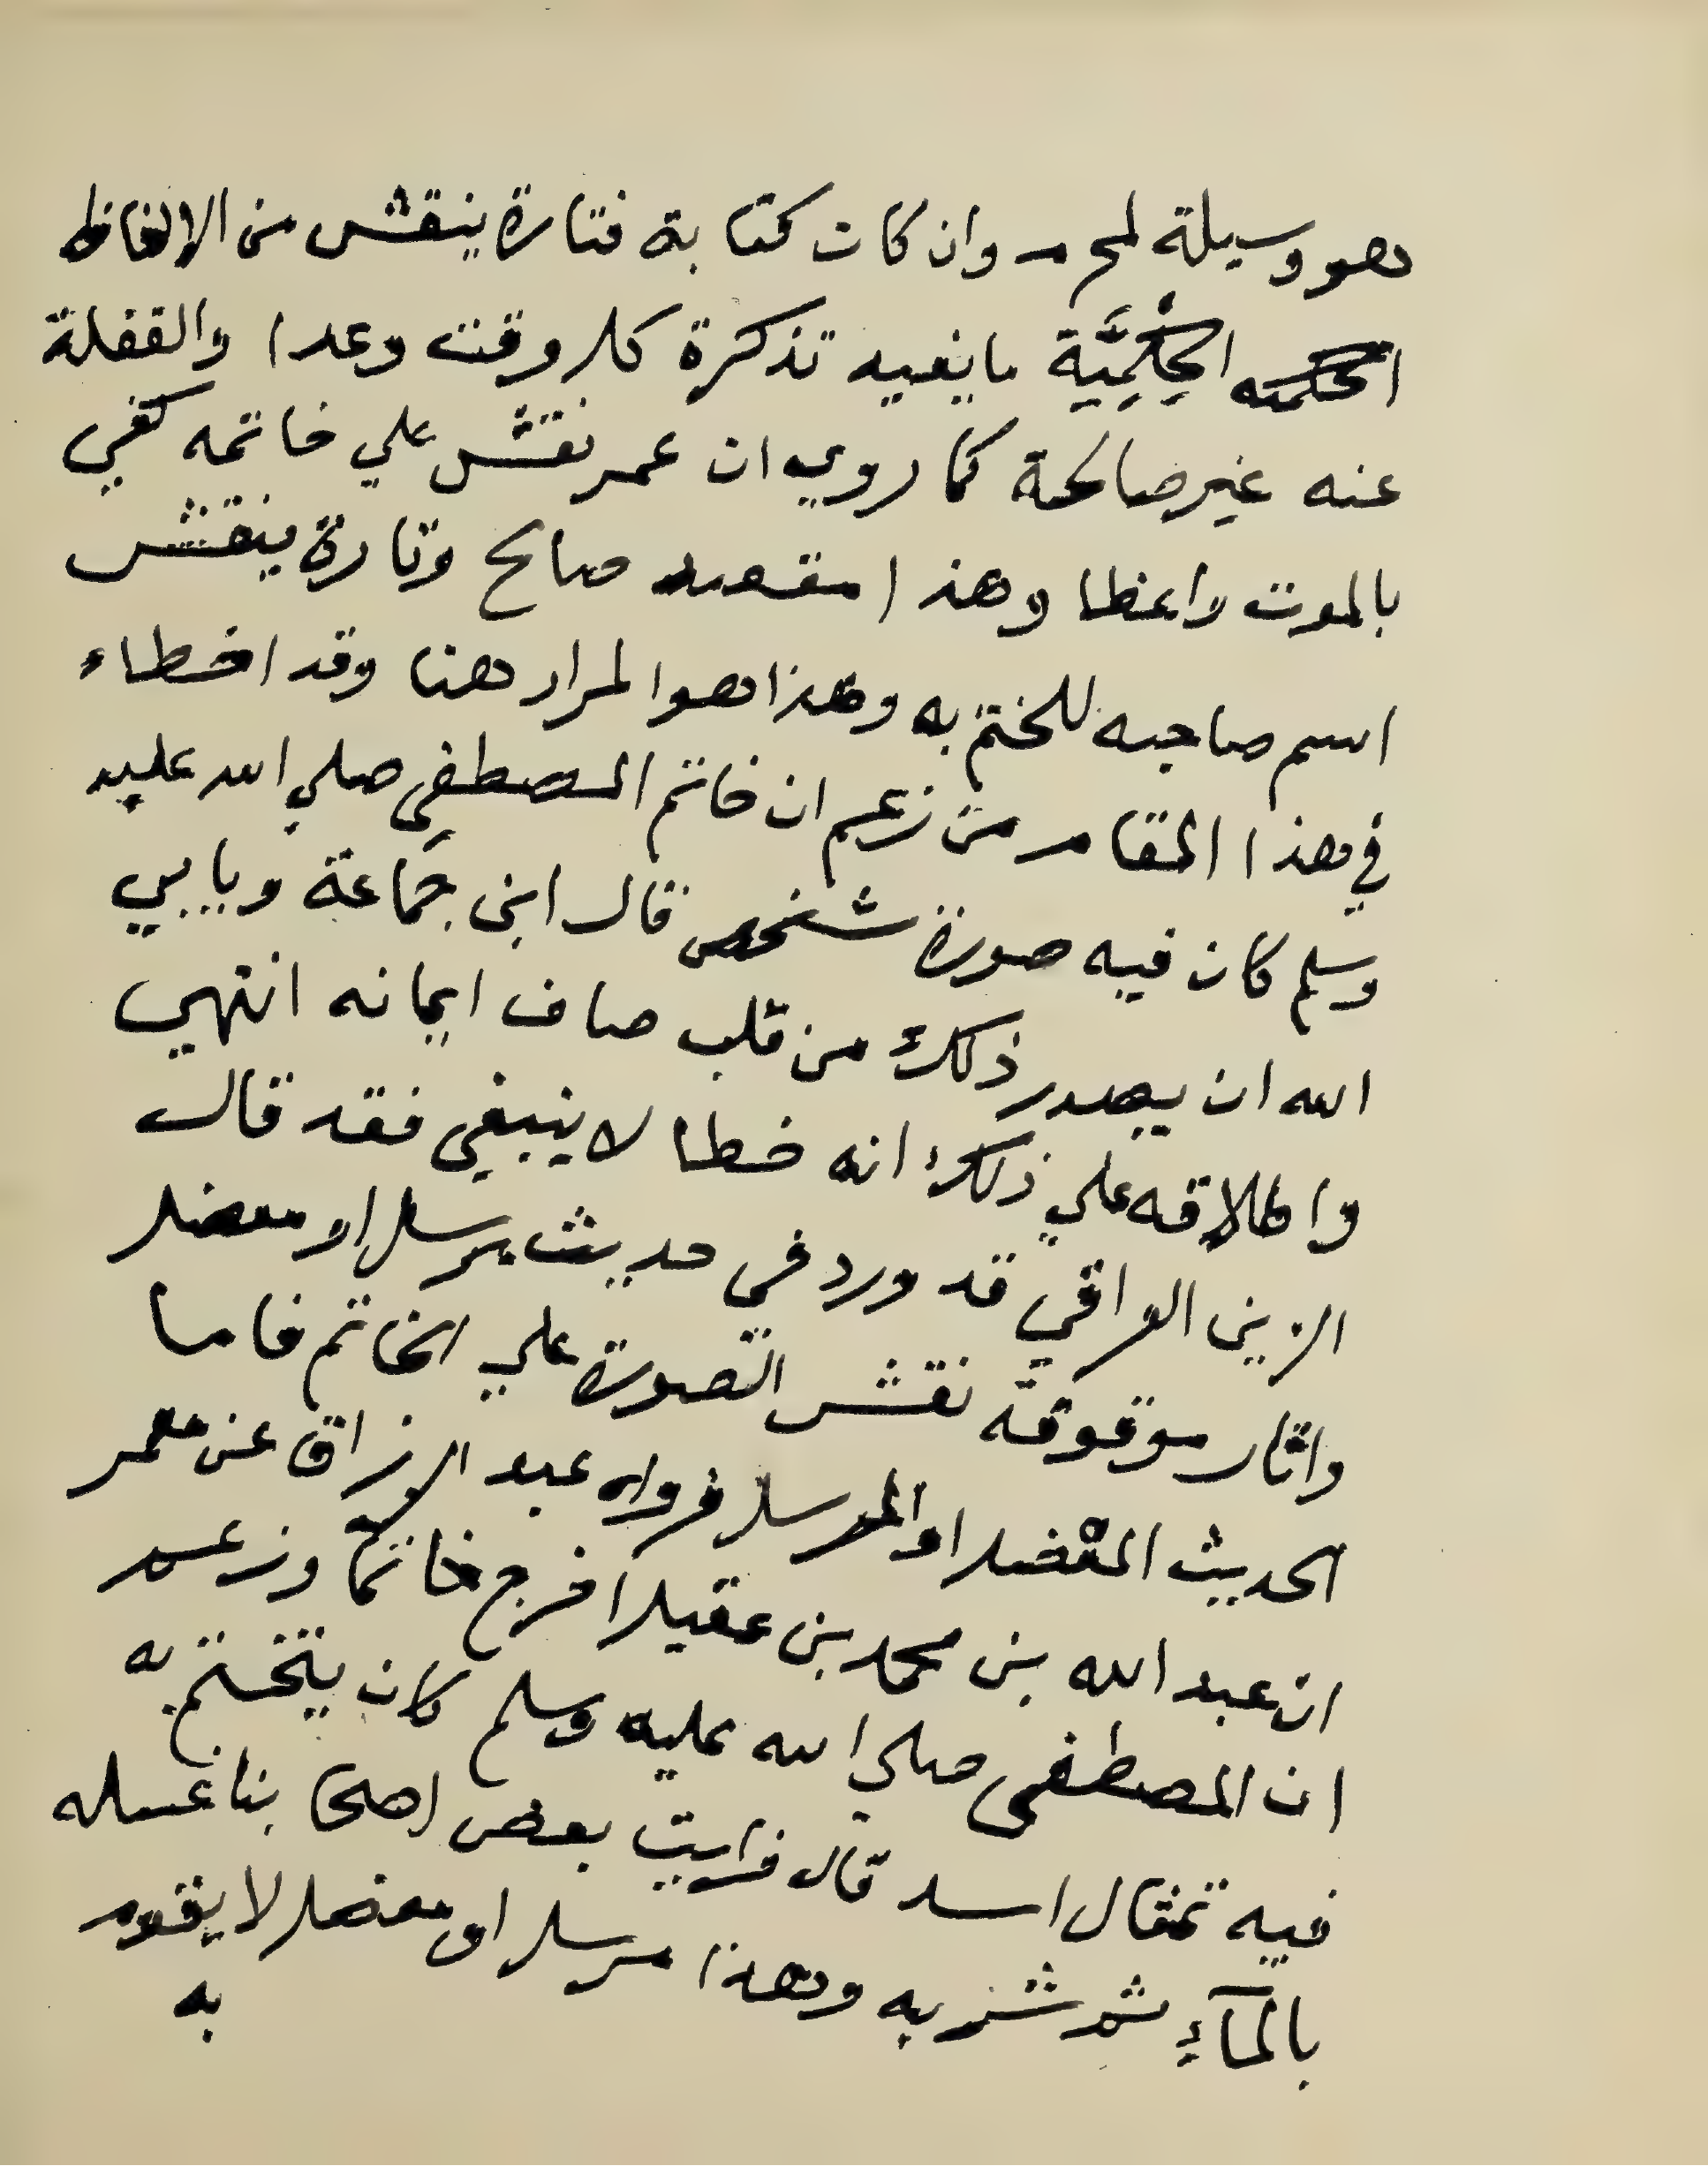 هو وسيلة لمحرم وان كات كتابة فتارة ينقش من الالفاظ
الحكمه الحِكْمِيَّة ما يفيد تذكرة كل وقت وعدا والغفلة
عنه غير صالحة كما روي ان عمر نقش علي خاتمه كفي
بالموت واعظا وهذا مقصد صالح وتارة ينقش
اسم صاحبه للختم به وهذا هو المراد هنا وقد اخطاء
في هذا المقام من زعم ان خاتم المصطفي صلي الله عليه
وسلم كان فيه صورة شخص قال ابن جماعة ويابي
الله ان يصدر ذلك من قلب صاف ايمانه انتهي
واطلاقه علي ذلك انه خطا لا ينبغي فقد قال
الزين العراقي قد ورد في حديث مرسل او معضل
واثار موقوفة نقش الصورة علي الخاتم فاما
الحديث المعضل او المرسل فرواه عبد الرزاق عن معمر
ان عبد الله بن محمد بن عقيل اخرج خاتما وزعم
ان المصطفي صلي الله عليه وسلم كان يتختم به
فيه تمثال اسد قال فرايت بعض اصحابنا غسله
بالمآء ثم شربه وهذا مرسل او معضل لا يقوم
به